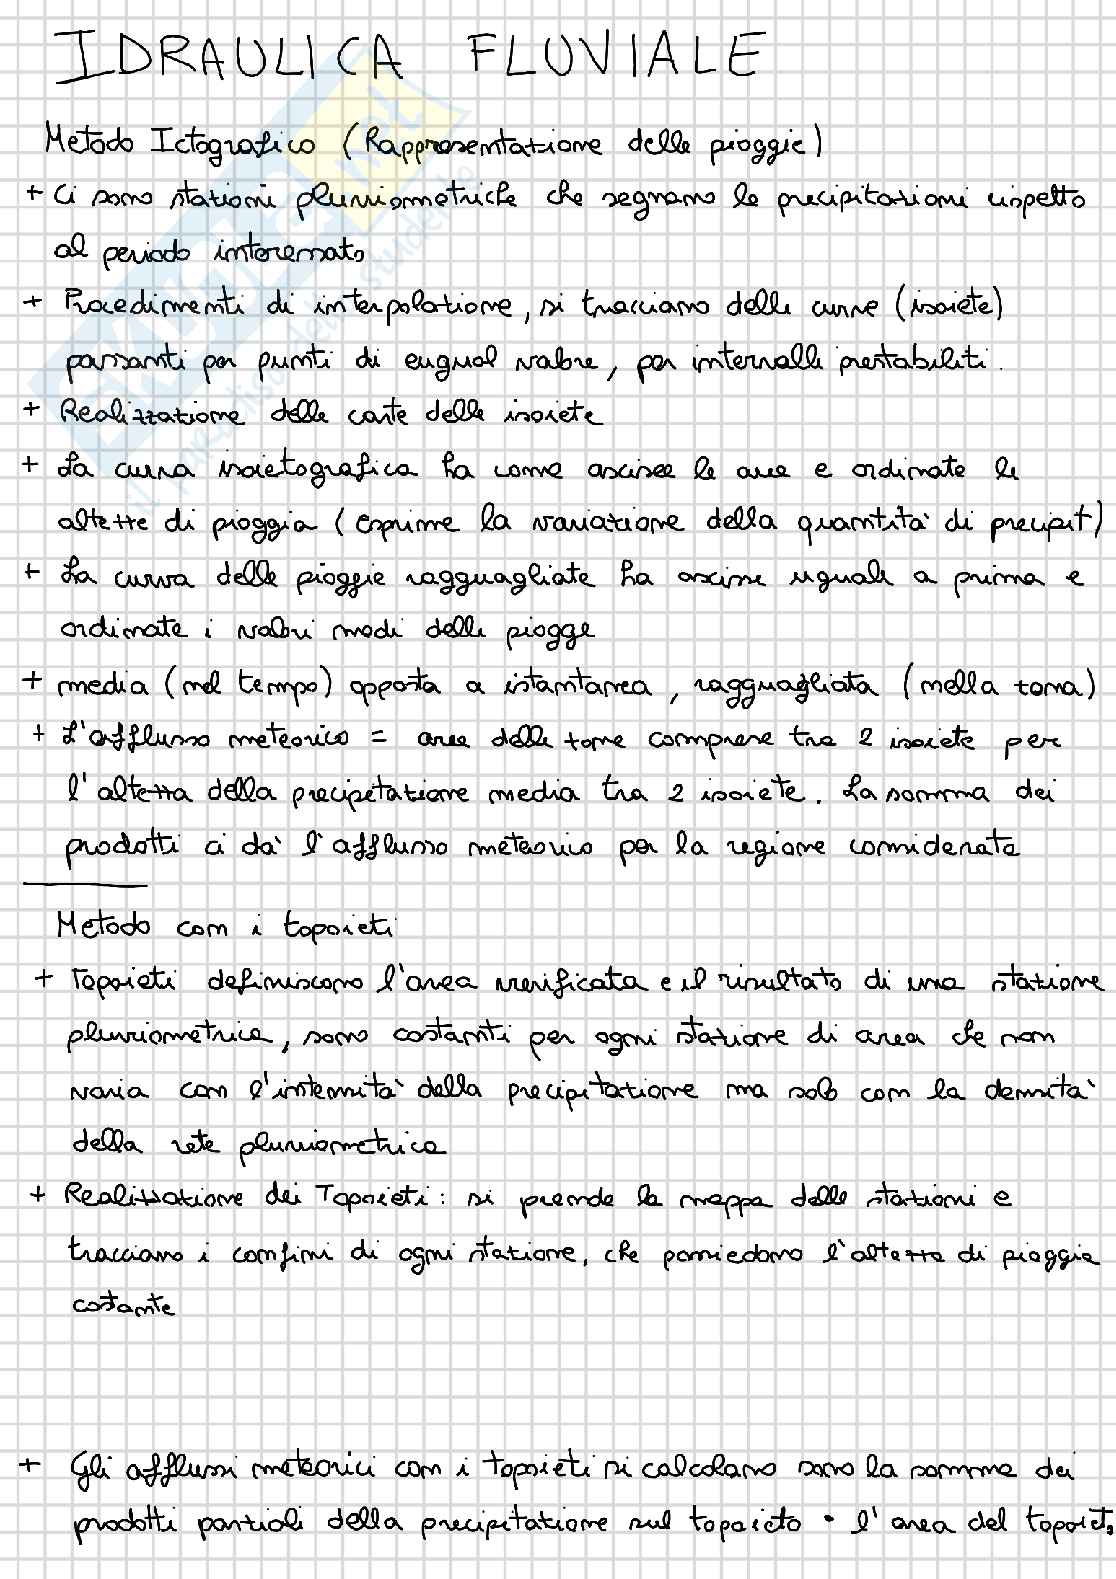 IDRAULICA FLUVIALE
Metodo Ictografico (Rappresentazione delle pioggie)
+ Ci sono stazioni pluviometriche che segnano le precipitazioni rispetto
al periodo interessato
+ Procedimenti di interpolazione, si tracciano delle curve (isoiete)
passanti per punti di eugual valore, per intervalli prestabiliti.
+ Realizzazione delle carte delle isoiete
+ La curva isoietografica ha come ascisse le aree e ordinate le
altezze di pioggia (esprime la variazione della quantità di precipit)
+ La curva delle pioggie ragguagliate ha ascisse uguali a prima e
ordinate i valori medi delle piogge
+ media (nel tempo) opposta a istantanea, ragguagliata (nella zona)
+ L'afflusso meteorico = aree delle zone comprese tra 2 isoiete per
l'altezza della precipitazione media tra 2 isoiete. La somma dei
prodotti ci da' l'afflusso meteorico per la regione considerata
Metodo con i topoieti
+ Topoieti definiscono l'area verificata e il risultato di una stazione
pluviometrica, sono costanti per ogni stazione di area che non
varia con l'intensità della precipitazione ma solo con la densità
della rete pluviometrica
+ Realizzazione dei Topoieti: si prende la mappa delle stazioni e
tracciano i confini di ogni stazione, che possiedono l'altezza di pioggia
costante
+ Gli afflussi meteorici con i topoieti si calcolano sono la somma dei
prodotti parziali della precipitazione sul topoieto • l'area del topoieto